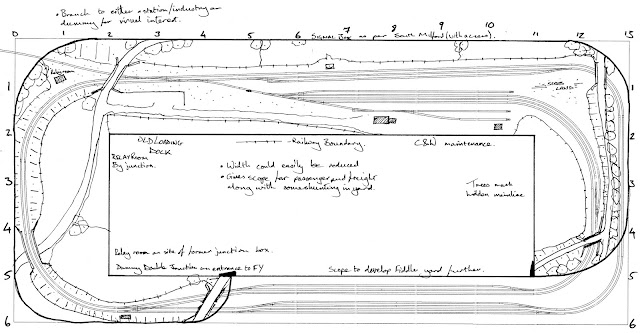 • Branch to either a station/industry or
dummy for visual interest.
SIGNAL BOX as per South Milford (with access).
0 5 6 7 8 9 10 11 15
Relay room
SIDES
LAND?
1 1
OLD LOADING
DOCK
Railway Boundary.
C&W maintenance.
2 2
RELAY ROOM
By junction.
• Width could easily be reduced
• Gives scope for passenger and freight
along with some shunting in yard.
Trees mask
hidden mainline
3 3
4 4
Relay room on site of former junction box.
Dummy Double Junction on entrance to FY
Scope to develop fiddle yard further.
5 5
6 6